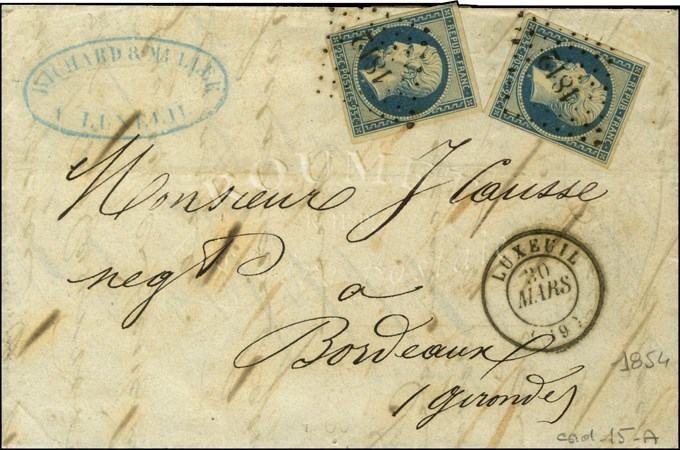 RICHARD & MULLER
A LUXEUIL
REPUB. FRANC.
POSTES
1812
REPUB. FRANC.
1812
Monsieur J Causse
negt
a
Bordeaux
(gironde)
LUXEUIL
20
MARS
(69)
1854
cad-15-A